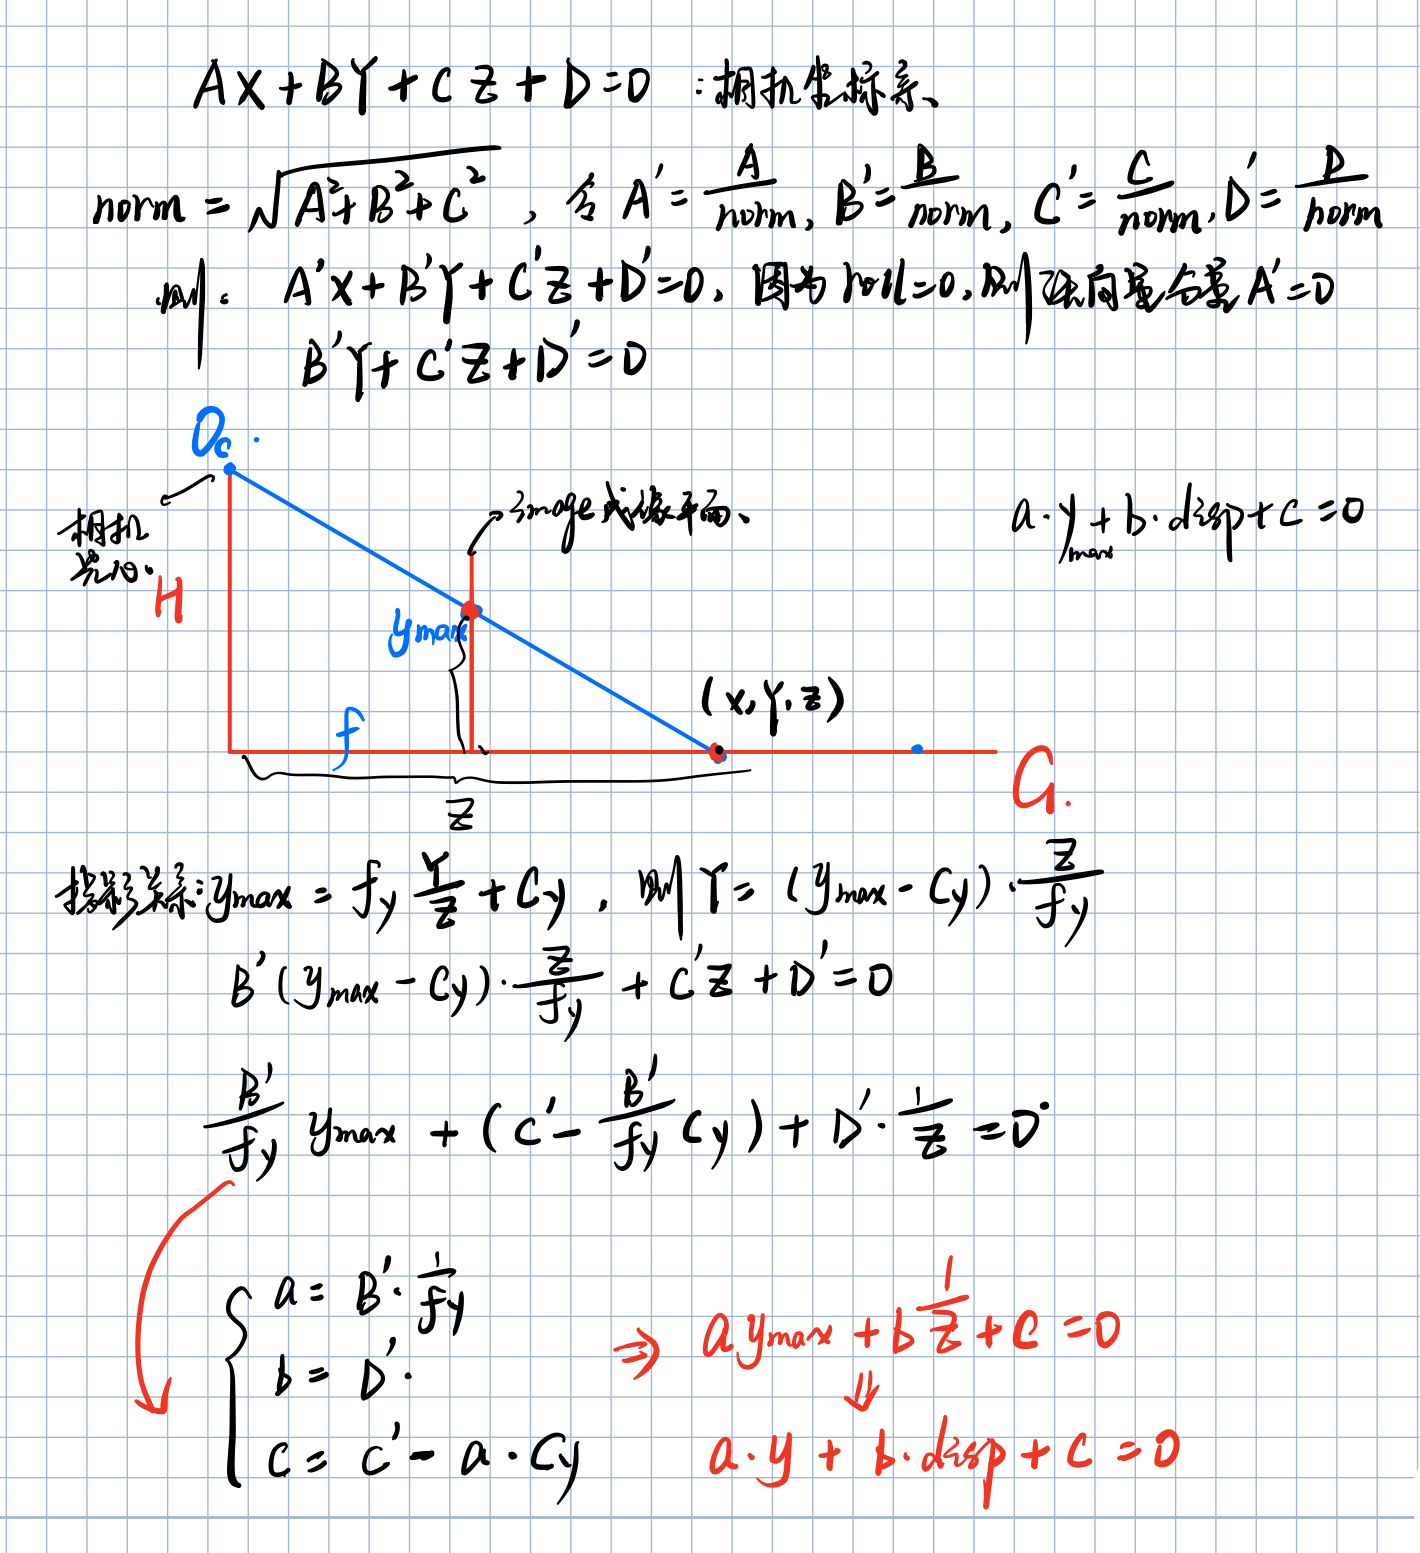 AX+BY+CZ+D=0 :相机坐标系、
norm = √(A²+B²+C²) , 令 A'=A/norm, B'=B/norm, C'=C/norm, D'=D/norm
则: A'X+B'Y+C'Z+D'=0, 因为roll=0, 则法向量分量A'=0
B'Y+C'Z+D'=0
Oc.
相机
光心.
H
image成像平面、
a·ymax+b·disp+c=0
ymax
(X,Y,Z)
f
G.
Z
投影关系:ymax = fy Y/Z + Cy , 则 Y= (ymax-Cy)·Z/fy
B'(ymax-Cy)·Z/fy + C'Z+D'=0
B'/fy ymax + (C'-B'/fy Cy)+D'·1/Z=0
a= B'·1/fy
b= D'.
c= C'-a·Cy
⇒ aymax+b1/Z+c=0
⇓
a·y+b·disp+c=0